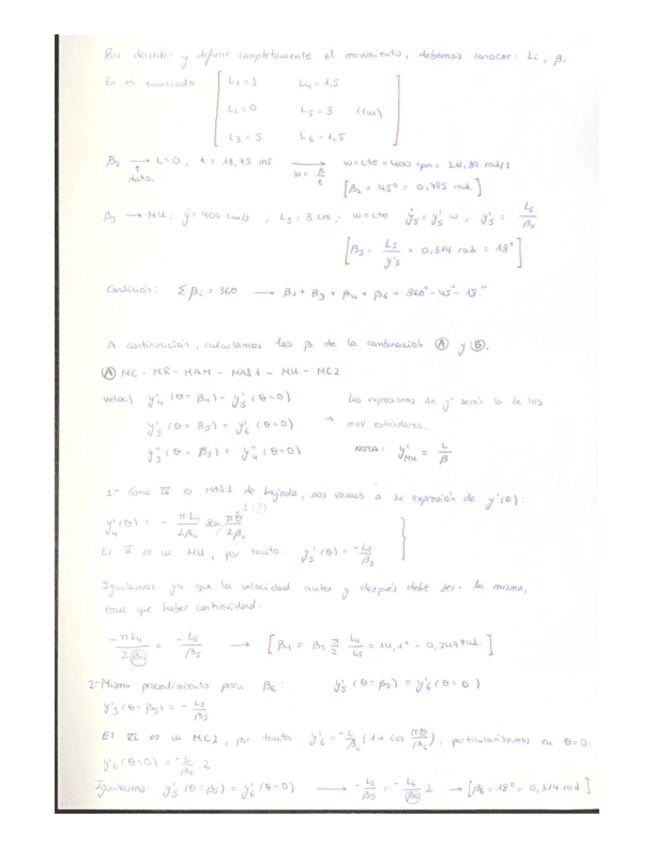 Para describir y definir completamente el movimiento, debemos conocer: Li, β.
En el enunciado: L1=1 L4=1,5
L2=0 L5=3 (cm)
L3=5 L6=1,5
β2 → L=0, t = 18,75 ms → w=cte=400 rpm = 41,89 rad/s
dato. w = β/t [β2 = 45° = 0,785 rad.]
β5 → MU: ẏ=400 cm/s ; L5=3 cm ; w=cte ẏ5=y'5 w ; y'5 = L5/β5
[β5 = L5/y'5 = 0,314 rad = 18°]
Condición: Σβi=360 → β1+β3+β4+β6=360°-45°-18°
A continuación, calculamos las β de la combinación Ⓐ y Ⓑ.
Ⓐ MC - MR - MAM - MAS1 - MU - MC2
veloc) y'4 (θ=β4) = y'5 (θ=0) Las expresiones de y' serán la de los
y'5 (θ=β5) = y'6 (θ=0) → mov estándares.
y''3 (θ=β3) = y''4 (θ=0) NOTA: y'MU = L/β
1.- Como IV es MAS1 de bajada, nos vamos a su expresión de y'(θ):
y'4(θ) = - πL4/2β4 sen πθ/2β4 1 (?)
El V es un MU, por tanto: y'5(θ) = -L5/β5
Igualamos ya que la velocidad antes y después debe ser la misma,
tiene que haber continuidad.
-πL4/2β4 = -L5/β5 → [β4 = β5 π/2 L4/L5 = 14,1° = 0,247 rad.]
2- Mismo procedimiento para β6: y'5(θ=β5) = y'6(θ=0)
y'5(θ=β5) = -L5/β5
El VI es un MC2, por tanto: y'6 = -L/β6 (1+cos πθ/β6), particularizamos en θ=0:
y'6(θ=0) = -L/β6 · 2
Igualamos: y'5(θ=β5) = y'6(θ=0) → -L5/β5 = -L6/β6 2 → [β6=18° = 0,314 rad]